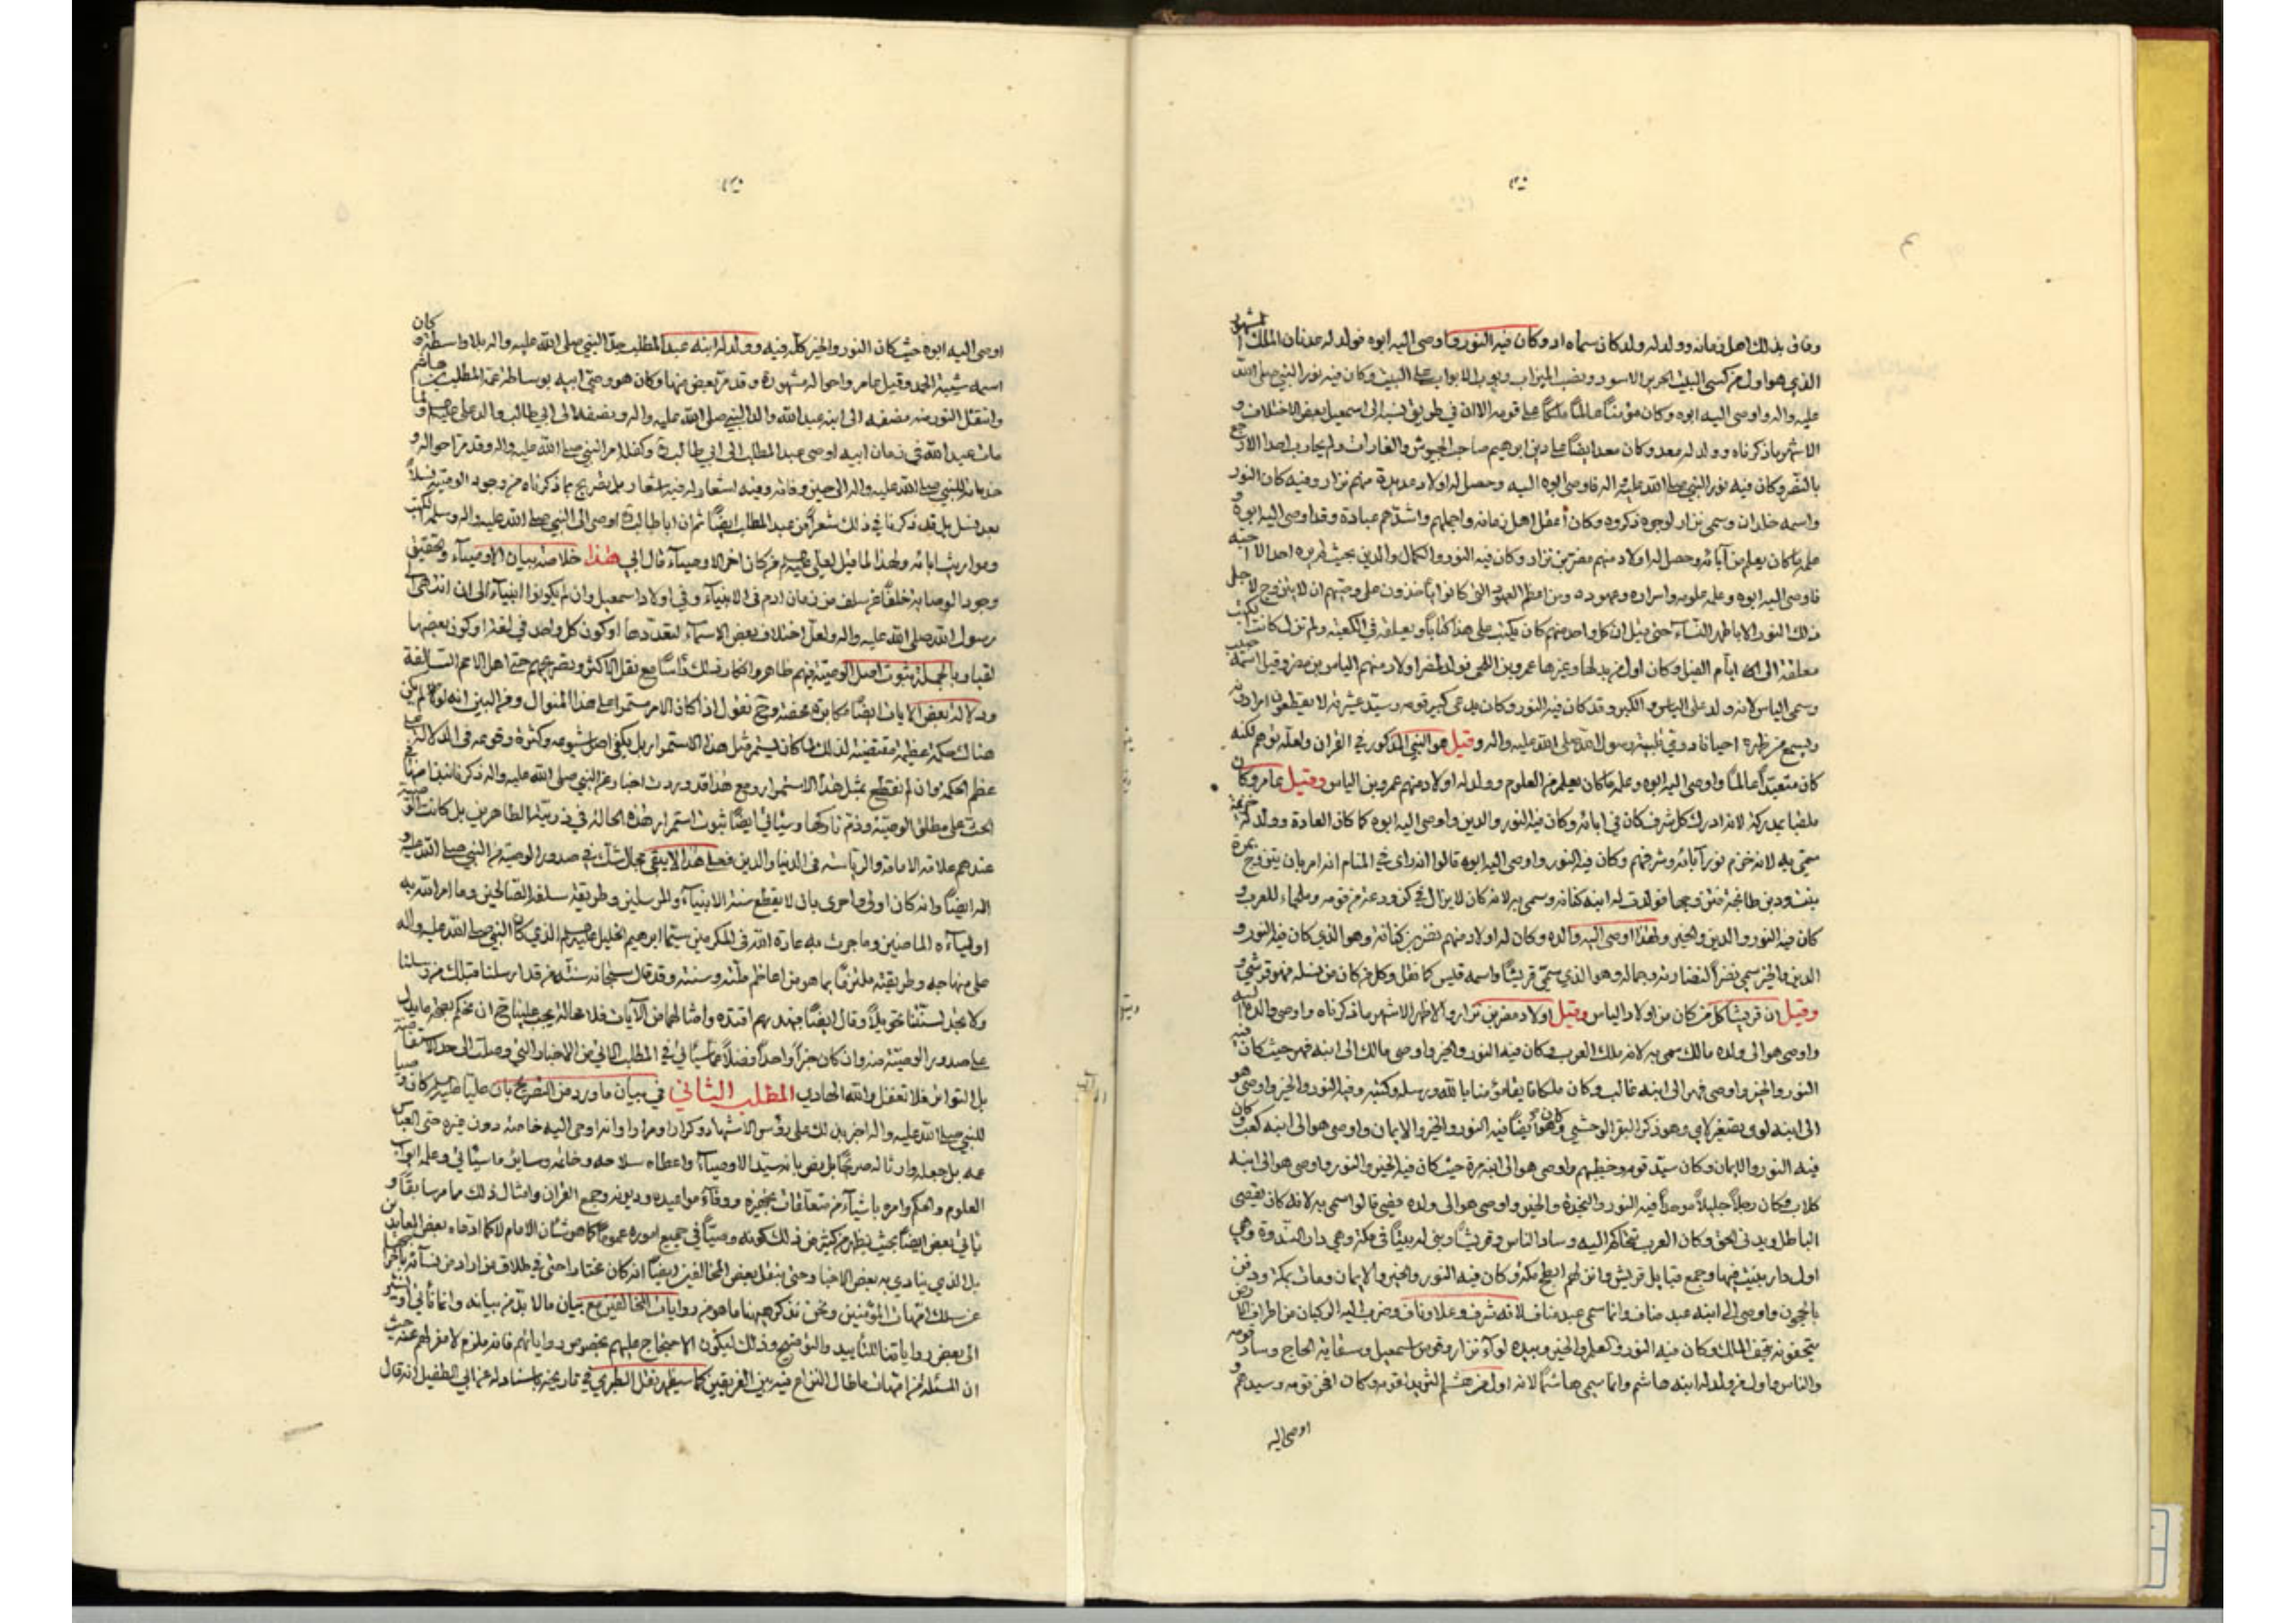 وفاق بذلك اهل زمانه وولد له ولد كان سماه اد وكان فيه النور واوصى اليه ابوه فولد له عدنان الملك المشهور
الذي هو اول من كسى البيت الحرير الاسود ونصب الميزاب وبوب الابواب على البيت وكان فيه نور النبي صلى الله
عليه واله واوصى اليه ابوه وكان مؤمنا عالما ملكا على قومه الا ان في طريق نسبه الى اسمعيل بعض الاختلاف و
الاشهر ما ذكرناه وولد له معد وكان معد ايضا على دين ابرهيم صاحب الجيوش والغارات ولم يحارب احدا الا رجع
بالنصر وكان فيه نور النبي صلى الله عليه واله فاوصى ابوه اليه وحصل له اولاد عديدة منهم نزار وفيه كان النور
واسمه خلدان وسمي نزار لوجوه ذكروه وكان اعقل اهل زمانه واجملهم واشدهم عبادة وقد اوصى اليه ابوه و
علمه ما كان يعلم من آبائه وحصل له اولاد منهم مضر بن نزار وكان فيه النور والكمال والدين بحيث لم يره احد الا احبه
فاوصى اليه ابوه وعلمه علومه واسراره وعهوده ومن اعظم العهود التي كانوا ياخذون على وصيهم ان لا يتزوج لاجل
ذلك النور الا باطهر النساء حتى قيل ان كل واحد منهم كان يكتب على هذا كتابا ويعلقه في الكعبة ولم تزل كانت الكتب
معلقة الى ايام الفيل وكان اول من بدلها وغيرها عمرو بن اللحي فولد لمضر اولاد منهم الياس بن مضر وقيل اسمه حبيب
وسمي الياس لانه ولد على الياس والكبر وقد كان فيه النور وكان يدعى كبير قومه وسيد عشيرته لا يقطعون امرا دونه
ويسمع من ظهره احيانا دوي تلبية رسول الله صلى الله عليه واله وقيل هو النبي المذكور في القران ولعله توهم لكنه
كان متعبدا عالما واوصى اليه ابوه وعلمه ما كان يعلم من العلوم وولد له اولاد منهم عمرو بن الياس وقيل عامر وكان
ملقبا بمدركة لانه ادرك كل شرف كان في ابائه وكان فيه النور والدين واوصى اليه ابوه كما كان العادة وولد له خزيمة
سمي به لانه خزم نور آبائه وشرفهم وكان فيه النور واوصى اليه ابوه قالوا انه راى في المنام انه امر بان يتزوج ببرة
بنت ود بن طابخة فتزوجها فولدت له ابنه كنانة وسمي به لانه كان لا يزال في كن ودعة من قومه وملجاء للعرب و
كان فيه النور والدين والخير ولهذا اوصى اليه والده وكان له اولاد منهم نضر بن كنانة وهو الذي كان فيه النور و
الدين والخير سمي نضرا لنضارته وجماله وهو الذي سمي قريشا واسمه قيس كما نقل وكل من كان من نسله فهو قرشي و
وقيل ان قريشا كل من كان من اولاد الياس وقيل اولاد مضر بن نزار والاظهر الاشهر ما ذكرناه واوصى والده اليه
واوصى هو الى ولده مالك سمي به لانه ملك العرب وكان فيه النور والخير واوصى مالك الى ابنه فهر حيث كان فيه
النور والخير واوصى فهر الى ابنه غالب وكان ملكا فايقا مؤمنا بالله ورسله وكتبه وفيه النور والخير واوصى هو
الى ابنه لوي بتصغير لاي وهو ذكر البقر الوحشي وكان هو ايضا فيه النور والخير والايمان واوصى هو الى ابنه كعب وكان
فيه النور والايمان وكان سيد قومه وخطيبهم واوصى هو الى ابنه مرة حيث كان فيه الخير والنور واوصى هو الى ابنه
كلاب وكان رجلا جليلا موحدا فيه النور والنجدة والخير واوصى هو الى ولده قصي قالوا سمي به لانه كان يقصي
الباطل ويدني الحق وكان العرب تتحاكم اليه وساد الناس وقريشا وبنى له بيتا في مكة وهي دار الندوة وهي
اول دار بنيت فيها وجمع قبايل قريش وانزلهم ابطح مكة وكان فيه النور والخير والايمان ومات بمكة ودفن
بالحجون واوصى الى ابنه عبد مناف وانما سمي عبد مناف لانه شرف وعلا وناف وضرب اليه الركبان من اطراف الارض
يتحفونه تحف الملك وكان فيه النور والعلم والخير وبيده لواء نزار وقوس اسمعيل وسقاية الحاج وساد قومه
والناس واول من ولد له ابنه هاشم وانما سمي هاشما لانه اول من هشم الثريد لقومه وكان افخر قومه وسيدهم و
اوصى اليه
اوصى اليه ابوه حيث كان النور والخير كله فيه وولد له ابنه عبد المطلب جد النبي صلى الله عليه واله بلا واسطة كان
اسمه شيبة الحمد وقيل عامر واحواله مشهورة وقد مر بعض منها وكان هو وصي ابيه بوساطة عمه المطلب بن هاشم
وانتقل النور منه نصفه الى ابنه عبد الله والد النبي صلى الله عليه واله ونصفه الى ابي طالب والد علي ولما
مات عبد الله في زمان ابيه اوصى عبد المطلب الى ابي طالب وكفله امر النبي صلى الله عليه واله وقد مر احواله و
خدماته للنبي صلى الله عليه واله الى حين وفاته وفيه اشعار له فيه اشعار بل تصريح بما ذكرناه من وجود الوصية نسلا
بعد نسل بل قد ذكرنا في ذلك شعرا من عبد المطلب ايضا ثم ان ابا طالب اوصى الى النبي صلى الله عليه واله وسلم الكتب
ومواريث ابائه ولهذا لما قيل لعلي من كان اخر الاوصياء قال ابي هذا خلاصة بيان الاوصياء وتحقيق
وجود الوصاية خلفا عن سلف من زمان ادم في الانبياء وفي اولاد اسمعيل وان لم يكونوا انبياء الى ان انتهى الى
رسول الله صلى الله عليه واله ولعل اختلاف بعض الاسماء لتعددها او كون كل واحد في لغة او كون بعضها
لقبا وبالجملة ثبوت اصل الوصية فيهم ظاهر وانكار ذلك راسا مع نقل الاكثر وتصريحهم حتى اهل الامم السالفة
ودلالة بعض الايات ايضا مكابرة محضة وح نقول اذا كان الامر مستمرا على هذا المنوال ومن البين انه لو لم يكن
هناك حكمة عظيمة مقتضية لذلك لما كان يستمر مثل هذا الاستمرار بل يكفي اصل شيوعه وكثرة وقوعه في الدلالة على
عظم الحكمة وان لم نقطع بمثل هذا الاستمرار ومع هذا قد وردت اخبار عن النبي صلى الله عليه واله ذكرنا نبذا منها في
الحث على مطلق الوصية وذم تاركها وسياتي ايضا ثبوت استمرار هذه الحالة في ذريته الطاهرين بل كانت الوصية
عندهم علامة الامامة والرياسة في الدنيا والدين فعلى هذا لا يبقى مجال شك في صدور الوصية من النبي صلى الله عليه و
اله ايضا وانه كان اولى واحرى بان لا يقطع سنة الانبياء والمرسلين وطريقة سلفه الصالحين وما امر الله به
اولياءه الماضين وما جرت به عادة الله في المكرمين سيما ابرهيم الخليل الذي كان النبي صلى الله عليه واله
على منهاجه وطريقته ملتزما بما هو من اعاظم ملته وسنته وقد قال سبحانه سنة من قد ارسلنا قبلك من رسلنا
ولا تجد لسنتنا تحويلا وقال ايضا فبهديهم اقتده وامثالهما من الآيات فلا محالة يجب علينا ح ان نحكم بما يدل
على صدور الوصية منه وان كان خبرا واحدا فضلا عما سياتي في المطلب الثاني من الاخبار التي وصلت الى حد الاستفاضة
بل التواتر فلا تغفل والله الهادي المطلب الثاني في بيان ما ورد من التصريح بان عليا كان وصيا
للنبي صلى الله عليه واله اخبر بذلك على رؤس الاشهاد وكرارا ومرارا وانه اوصى اليه خاصة دون غيره حتى العباس
عمه بل جعله وارثا له صريحا بل نص بانه سيد الاوصياء واعطاه سلاحه وخاتمه وسائر ما سياتي وعلمه ابواب
العلوم والحكم وامره باشياء من متعلقات تجهيزه ووفاء مواعيده وديونه وجمع القران وامثال ذلك مما مر سابقا و
ياتي بعض ايضا بحيث يظهر من كثير من ذلك كونه وصيا في جميع اموره عموما كما هو شان الامام لا كما ادعاه بعض المعاندين
بل الذي ينادي به بعض الاخبار وحتى بنقل بعض المخالفين ايضا انه كان مختارا حتى في طلاق من اراد من نسائه باخراجها
عن سلك امهات المؤمنين ونحن نذكر ههنا ما هو من روايات المخالفين مع بيان ما لا بد من بيانه وانما نشير
الى بعض رواياتنا للتاييد والتوضيح وذلك ليكون الاحتجاج عليهم بخصوص رواياتهم فانه ملزم لا مفر لهم عنه حيث
ان المسئلة من امهات ما طال النزاع فيه بين الفريقين كما سيظهر نقل الطبري في تاريخه باسناد له عن ابي الطفيل انه قال